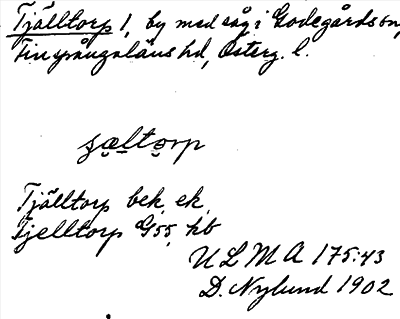 Tjälltorp 1, by med såg i Godegårds sn,
Finspångaläns hd, Österg. l.
Tjälltorp bek. ek.
Tjelltorp G55, kb
ULMA 175:43
D. Nylund 1902